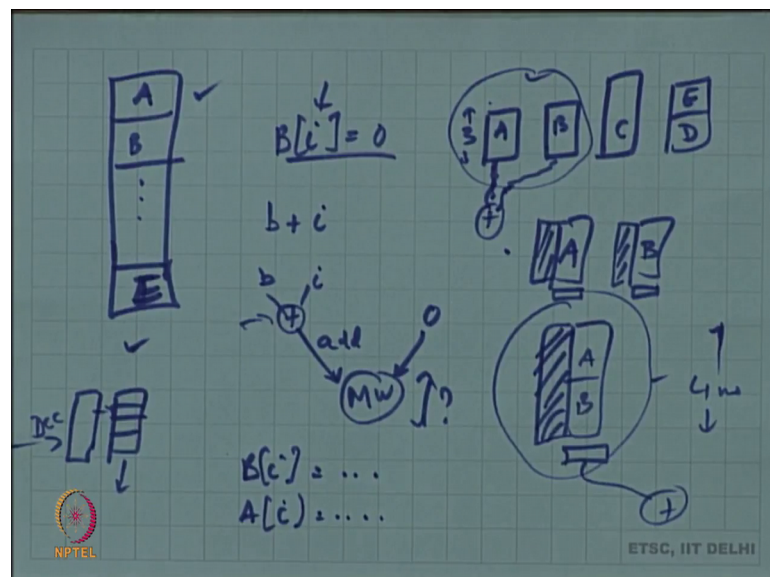 A
B
E
B[i] = 0
b + i
b i
+
add
0
MW
?
B[i] = ...
A[i] = ....
Dec
3
A
B
C
E
D
+
A
B
A
B
4 ns
+
NPTEL
ETSC, IIT DELHI